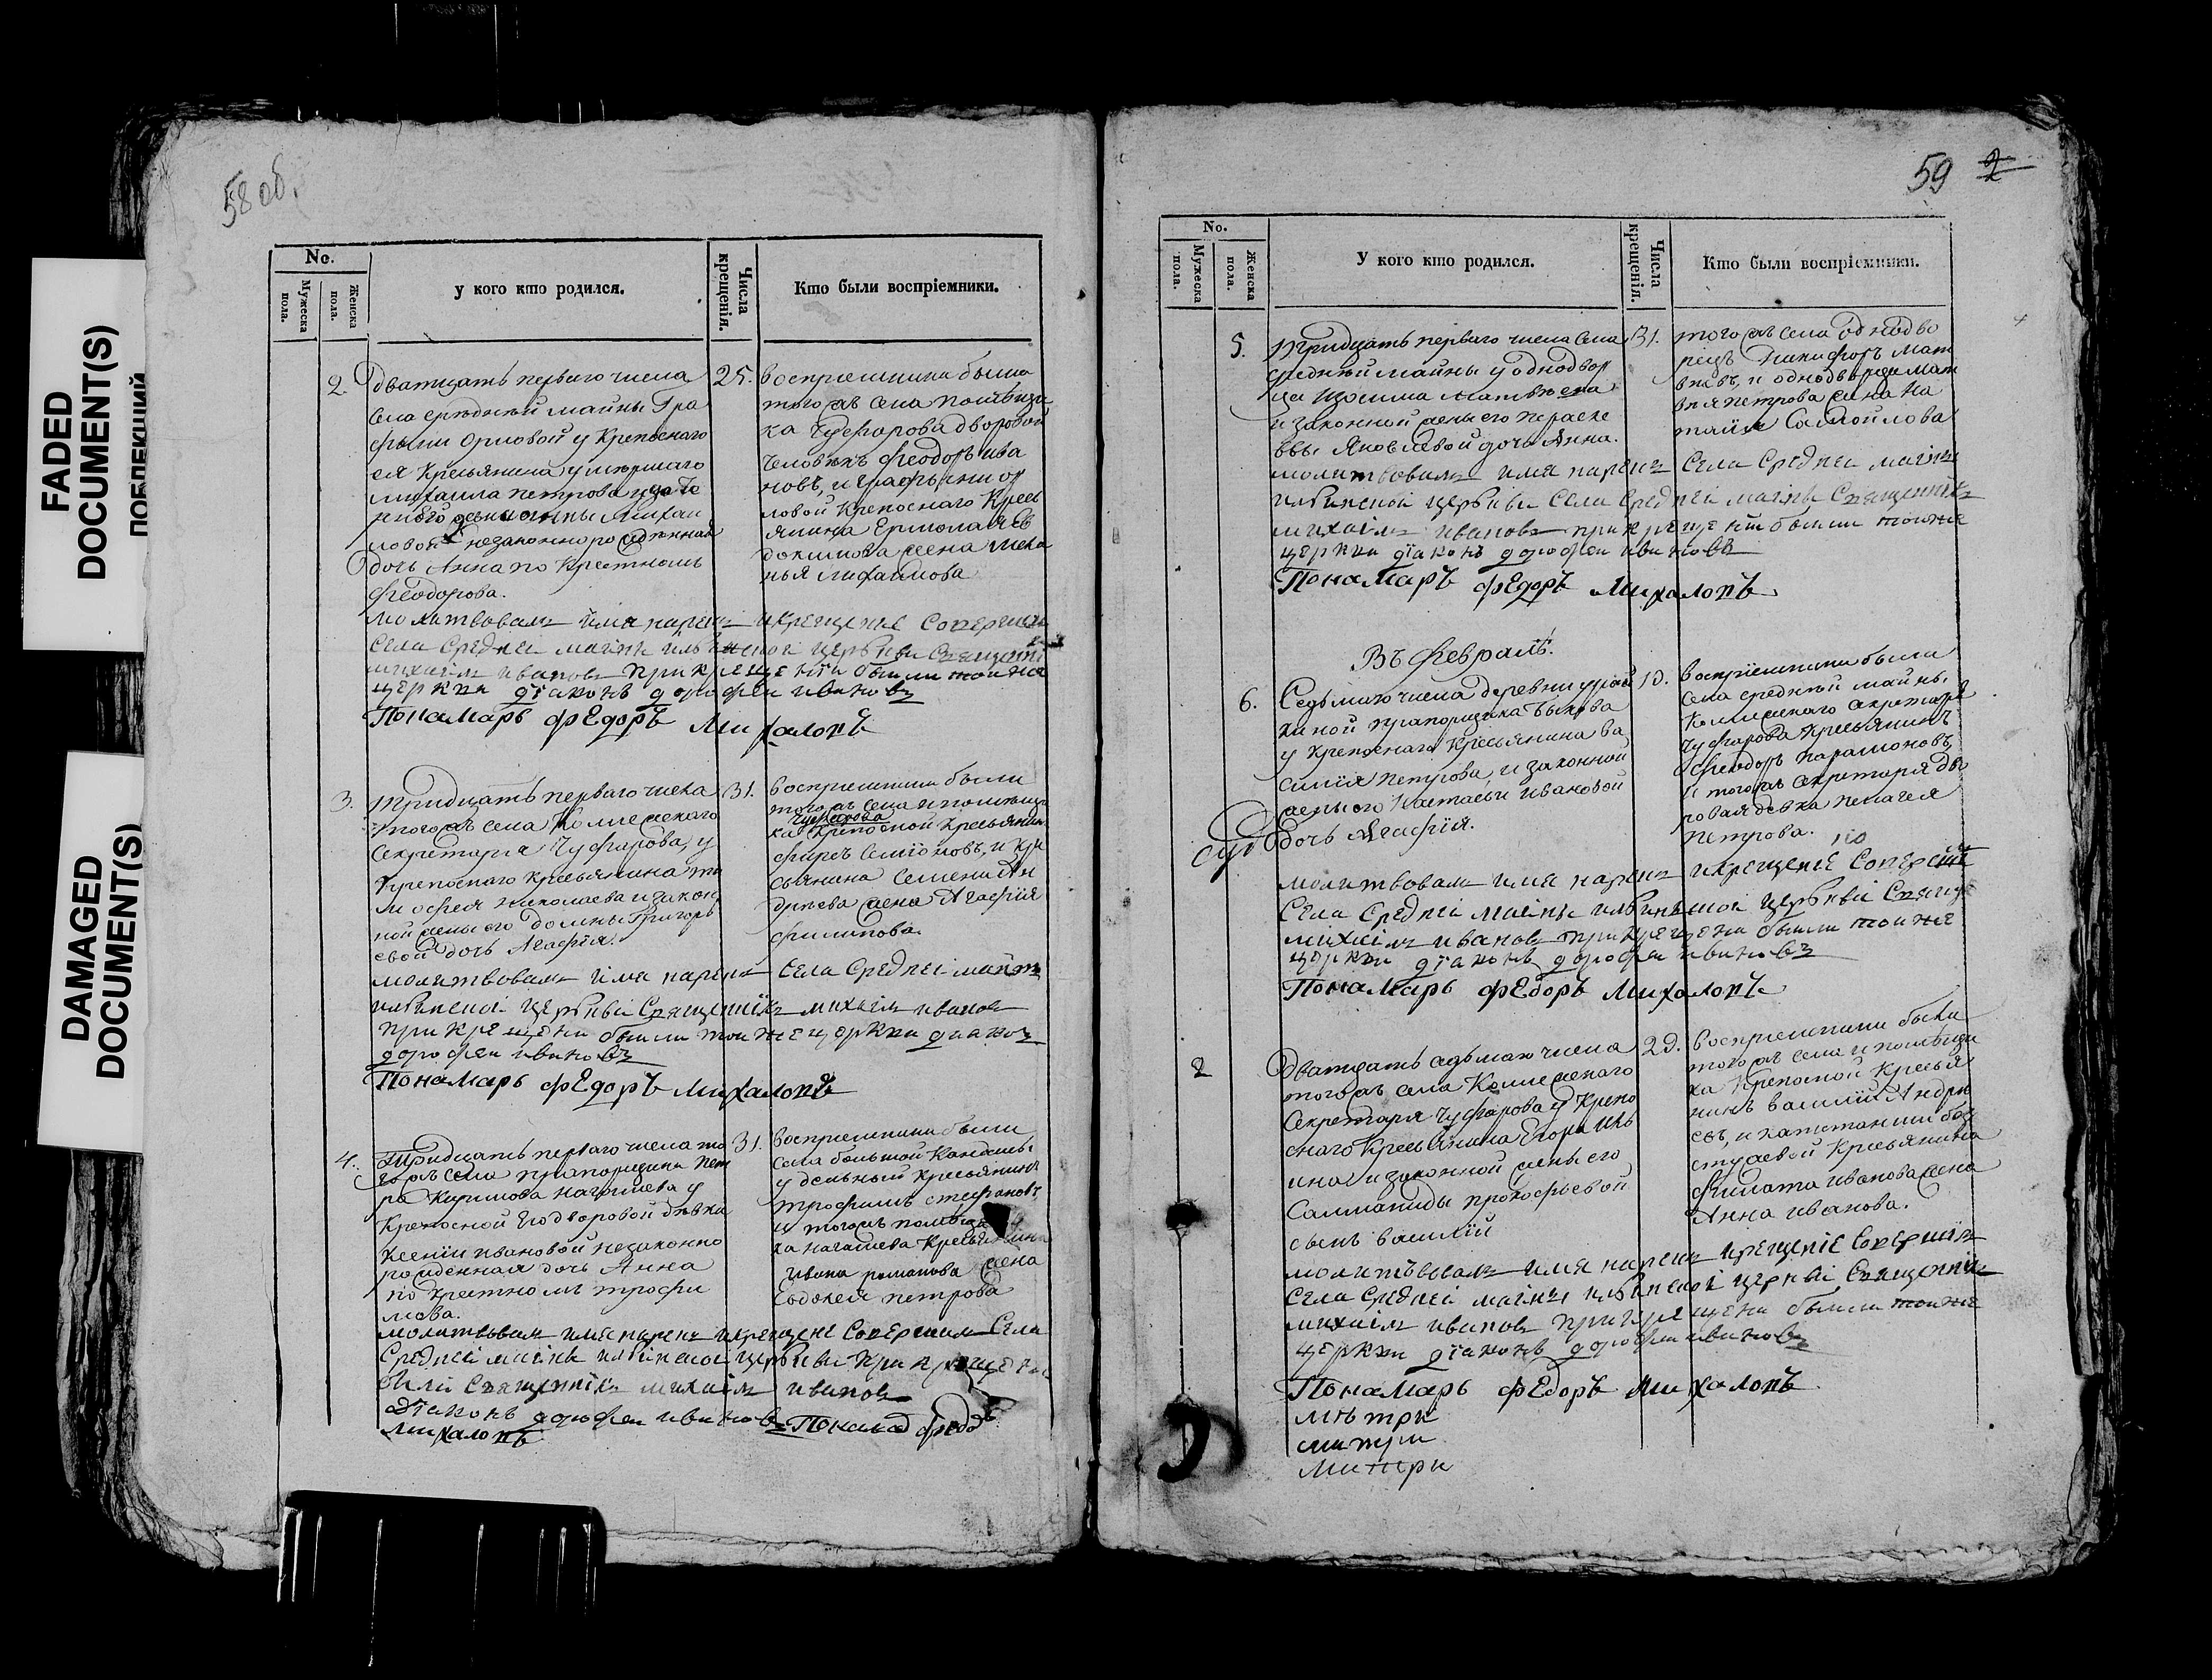 FADED
DOCUMENT(S)
DAMAGED
DOCUMENT(S)
58 об.
No.
Мужеска пола.
Женска пола.
у кого кто родился.
Числа крещенія.
Кто были воспріемники.
2. Дватцать перваго числа
села средней майны Гра
фини Орловой у Крепоснаго
ея Кресьянина умершаго
михаила петрова
незаконнорожденная
дочь Анна по Крестному
Феодорова.
25. воспріемники были
того жъ села помѣщи
ка Чуфарова дворовой
человѣкъ Феодоръ ива
новъ, и Графини ор
ловой Крепоснаго Кресь
янина Ермолая Ев
докимова жена
михаилова
молитвовалъ имя нарекъ и крещение совершилъ
Села Средней майны церкви Священникъ
михаилъ ивановъ при крещении были тоиже
церкви діаконъ дорофеи ивановъ
Понамарь федоръ Михаловъ
3. Тридцать перваго числа
того жъ села Колежскаго
Секретаря Чуфарова, у
Крепоснаго Кресьянина ти
мофея Николаева и закон
ной жены его домны Григорь
евой дочь Агафія.
31. воспріемники были
того жъ села и помѣщи
Чуфарова
ка Крепосной Кресьянин
Семіоновъ, и кре
сьянина Семена Ан
дреева жена Агафія
филипова.
молитвовалъ имя нарекъ Села Средней майны
церкви Священникъ михаилъ ивановъ
при крещени были тоиже церкви диаконъ
дорофеи ивановъ
Понамарь федоръ Михаловъ
4. Тридцать перваго числа то
гожъ села прапорщика Пет
ра Нагаткева у
Крепосной Его дворовой дѣвки
Ксении ивановой незаконно
рожденная дочь Анна
по Крестному трофи
мова.
31. воспріемники были
села большой Кандалы
удельный Кресьянинъ
трофимъ стефановъ,
и тогожъ помѣщи
ка Кресьянина
ивана романова жена
Евдокея петрова
молитвовалъ имя нарекъ и крещене совершилъ Села
Средней майны церкви при крещени
были Священникъ михаилъ ивановъ
діаконъ дорофеи ивановъ
Михаловъ
59 2
No.
Мужеска пола.
Женска пола.
У кого кто родился.
Числа крещенія.
Кто были воспріемники.
5. Тридцать перваго числа села
средней майны у однодвор
ца Изосима матвѣева
и законной жены его Параске
вы Яковлевой дочь Анна.
31. того жъ села однодво
рецъ Никифоръ Мат
вѣевъ, и однодворца Мат
вея петрова жена На
талія Самойлова
молитвовалъ имя нарекъ Села Средней майны
церкви Села Средней майны Священникъ
михаилъ ивановъ при крещении были тоиже
церкви діаконъ дорофеи ивановъ
Понамарь федоръ Михаловъ
Въ Февралѣ.
6. Седьмаго числа деревни
прапорщика
у крепоснаго Кресьянина Ва
силия Петрова, и законной
жены его Настасьи Ивановой
дочь Агафія.
10. воспріемники были
села средней майны
Колежскаго секретаря
Чуфарова Кресьянинъ
Феодоръ Парамоновъ,
и того жъ секретаря дво
ровая девка пелагея
петрова.
молитвовалъ имя нарекъ и крещение совершилъ
Села Средней майны церкви Священ
михаилъ ивановъ при крещени были тоиже
церкви діаконъ дорофеи ивановъ
Понамарь федоръ Михаловъ
2 Дватцать седьмаго числа
тогожъ села Колежскаго
Секретаря Чуфарова у Крепо
снаго Кресьянина Егора Иль
ина и законной жены его
Саломаниды прокофьевой
сынъ василій
29. воспріемники были
того жъ села и помѣщи
ка Крепосной Кресья
нинъ Василій Андре
евъ, и капитанши
Кресьянина
филата иванова жена
Анна иванова.
молитвовалъ имя нарекъ и крещение совершилъ
Села Средней майны церкви Священникъ
михаилъ ивановъ при крещени были тоиже
церкви діаконъ дорофеи ивановъ
Понамарь федоръ Михаловъ